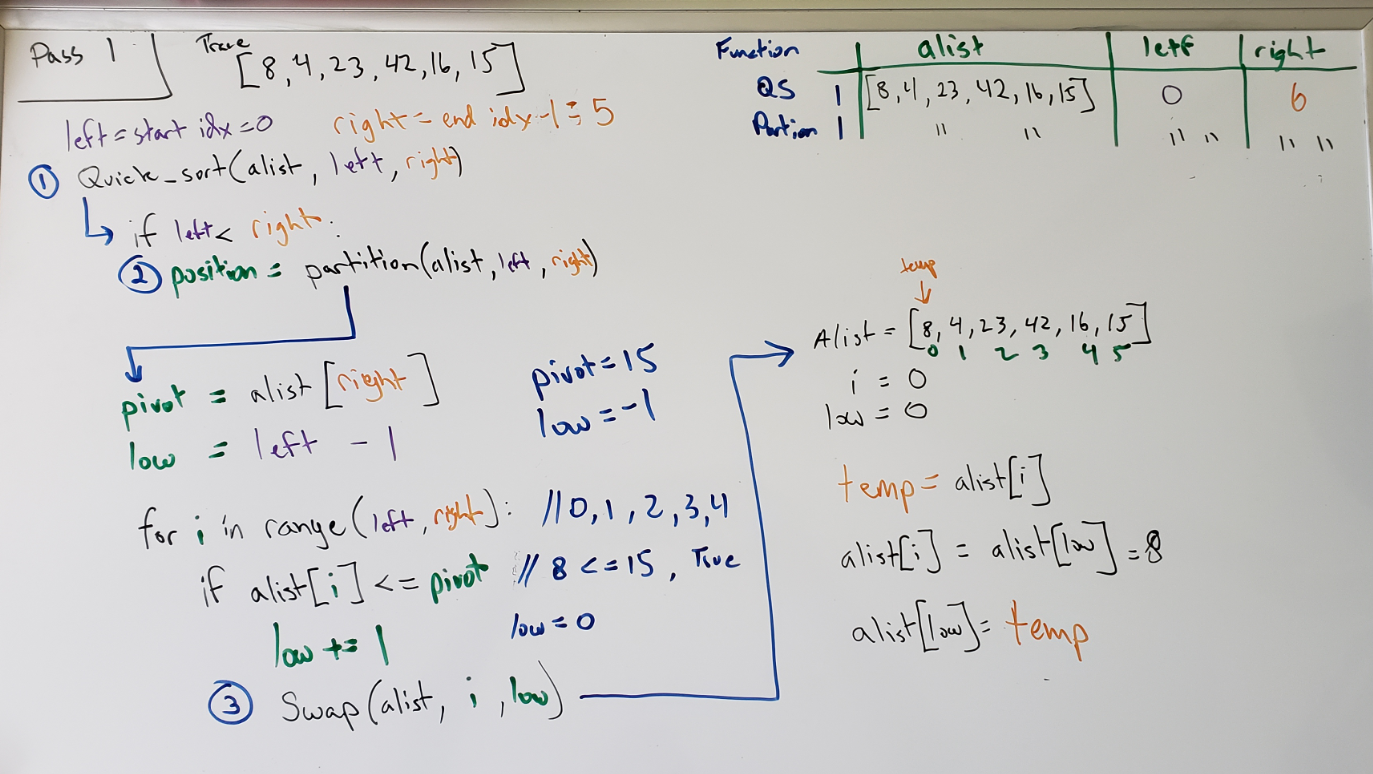 Pass 1
Trace
[8,4,23,42,16,15]
left = start idx = 0 right = end idx - 1 = 5
① Quick_sort(alist, left, right)
if left < right:
② position = partition(alist, left, right)
pivot = alist[right]
low = left - 1
pivot = 15
low = -1
for i in range(left, right): //0,1,2,3,4
if alist[i] <= pivot // 8 <= 15, True
low += 1 low = 0
③ Swap(alist, i, low)
Function alist letf right
QS 1 [8,4,23,42,16,15] 0 6
Partion 1 " " " " " "
temp
Alist = [8,4,23,42,16,15]
0 1 2 3 4 5
i = 0
low = 0
temp = alist[i]
alist[i] = alist[low] = 8
alist[low] = temp